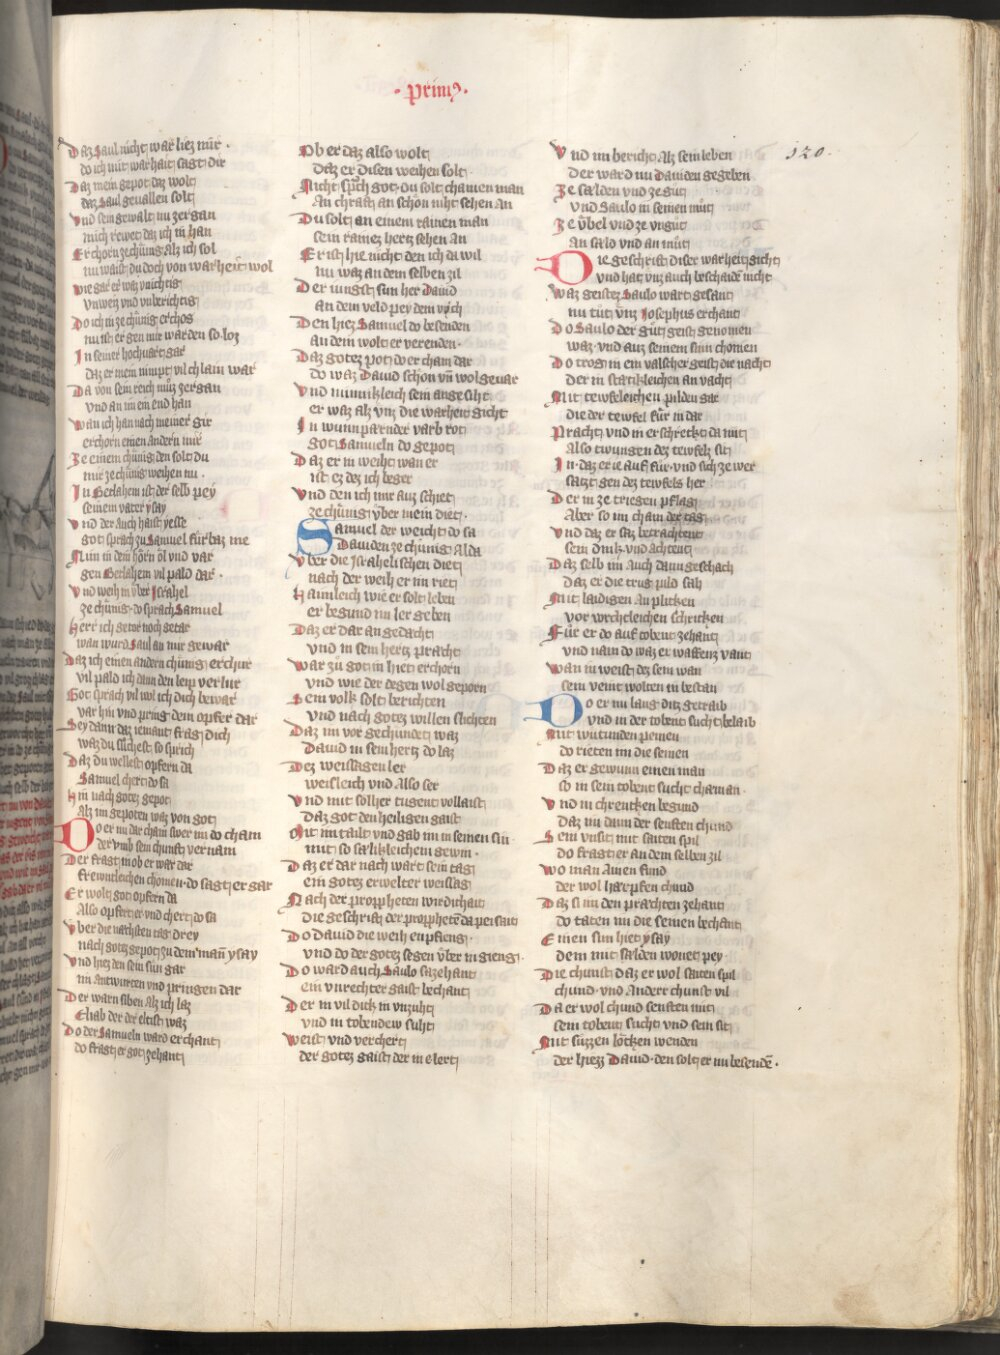 · Primus ·
120.
Daz Saul nicht war liez mir ·
do ich mit warhait sagt dir
Daz mein gepot daz wolt
daz Saul geuallen solt
Vnd sein gewalt nu zergan
mich rewet daz ich in han
Erchorn ze chünig Alz ich sol
nu waist du doch von warheit wol
wie gar er waz vnichtig
Vnweiz vnd vnberichtig
Do ich in ze chünig erchos
nu ist er gen mir warden so loz
In seiner hochuart gar
daz er mein nimpt vil chlain war
Da von sein reich muz zergan
Vnd an im end han
wan ich han nach meiner gir
erchorn einen andern mir
Ze einem chünig den solt du
mir ze chünig weihen nu ·
In Betlahem ist der selb pey
seinem vater ysay
Vnd der auch haist yesse
got sprach zu Samuel fürbaz me
Nim in dem horn öl vnd var
gen Betlahem vil pald dar ·
Vnd weih in vber Israhel
ze chünig · do sprach Samuel
Herr ich getar noch getar
wan wurd Saul an mir gewar
Daz ich einen andern chünig erchur
vil pald ich dann den leip verlür
Got sprach vil wol ich dich bewar
var hin vnd pring dem opfer dar
Sey dann daz iemant frag dich
waz du suchest so sprich
Daz du wellest opfern da
Samuel chert do sa
Hin nach gotez gepot
Alz im gepoten waz von got
Do er nu dar cham swer im do cham
der vmb sein chunft vernam
Der fragt in ob er war dar
frewntleichen chomen · do sagt er gar
Er wolt got opfern da
Also opfert er vnd chert do sa
Vber die nachsten tag drey
nach gotz gepot zu dem man ysay
Vnd hiez den sein sün gar
im antwurten vnd pringen dar
Der warn siben Alz ich laz
Eliab der der eltist waz
Do der Samueln ward erchant
do fragt er got zehant
Ob er daz also wolt
Daz er disen weihen solt ·
Nicht sprach got · du solt chainen man
An chraft an schon niht sehen an
Du solt an einem rainen man
sein rainez hertz sehen an
Er ist hie nicht den ich da wil
nu waz an dem selben zil
Der iungst sun her Dauid
an dem veld pey dem vych
Den hiez Samuel do besenden
an dem wolt er verenden ·
Daz gotez pot do er cham dar
do waz Dauid schon vnd wolgeuar
Vnd minnikleich sein angesiht
er waz alz vnz die warheit giht
In wunnpærnder varb rot
got Samueln do gepot
Daz er in weiht wan er
ist ez dez ich beger
Vnd den ich mir auz schiet
ze chünig vber mein diet ·
Samuel der weicht do sa
Dauiden ze chünig Alda
Vber die Israhelischen diet
nach der weih er im riet
Haimleich wie er solt leben
er begund im ler geben
Daz er dar an gedacht
vnd in sein hertz pracht
War zu got in hiet erchorn
vnd wie der degen wol geporn
Sein volk solt berichten
vnd nach gotez willen slichten
Daz im vor gechündet waz
Dauid in sein hertz do laz
Dez weissagen ler
weisleich vnd Also ser
Vnd mit solher tugent vollaist
Daz got den heiligen gaist
Mit im tailt vnd gab im in seinen sin ·
mit so sælikleichem gewin ·
Daz er dar nach wart sein tag
ein gotez erwelter weissag
Nach der propheten wirdichait
Die geschrift der propheten da peisait
Do Dauid die weih enpfieng ·
vnd do der gotez segen vber in gieng ·
Do ward auch Saulo sazehant
ein vnrechter gaist bechant
Der in vil dick in vnzuht
vnd in tobendew suht
Weist vnd verchert
der gotez gaist der in e lert
Vnd nu bericht Alz sein leben
der ward nu Dauiden gegeben
Ze sælden vnd ze gut
vnd Saulo in seinen mut
Ze vbel vnd ze vngut
an sæld vnd an mut
Die geschrift diser warheit gicht
vnd hat vnz auch beschaide nicht
Waz geistez Saulo wart gesant
nu tut vnz Josephus erchant
Do Saulo der gut geist genomen
waz · vnd auz seinem sinn chomen
Do trog in ein valscher geist die nacht
der in starkleichen an vacht
Mit tewfeleichen pilden gar
die der tewfel für in dar
Pracht vnd in erschreckt da mit
Also twungen dez tewfelz sit
In · daz er ie auf für · vnd sich ze wer
satzt gen dez tewfels her
Der in ze triegen pflag
Aber so im cham der tag
Vnd daz er saz betrachtent
sein dink · vnd achtent
Daz selb im Auch dann geschach
Daz er die trug pild sah
Mit laidigen Anplitken
vor wechsleichen schritken
Für er do auf tobent zehant
vnd nam do waz er waffenz vant
Wan in weist dez sein wan
sein veint wolten in bestan
Do er nu lang ditz getraib
vnd in der tobent sucht belaib
Mit wütunden peinen
do rieten im die seinen
Daz er gewunn einen man
so in sein tobent sucht cham an ·
Vnd in chrencken begund
Daz im dann der senften chund
Sein vnsit mit saiten spil
do fragt er an dem selben zil
Wo man Ainen fund
der wol harpfen chund
Daz si im den præchten zehant
do taten im die seinen bechant
Einen sun hiet ysay
dem mit sælden wonet pey
Die chunst daz er wol saiten spil
chund · vnd Ander chunst vil
Da er wol chund senften mit
sein tobent sucht vnd sein sit
Mit süzzen dœnken wenden
der hiezz Dauid · den solt er im besenden ·